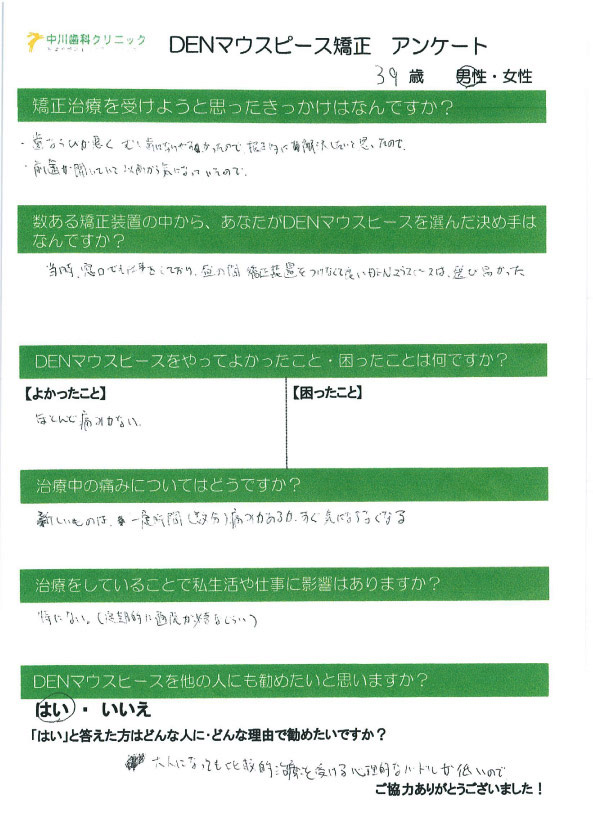 中川歯科クリニック
DENマウスピース矯正 アンケート
39 歳 男性・女性
矯正治療を受けようと思ったきっかけはなんですか？
・歯ならびが悪く むし歯になりやすかったので 根本的に解決したいと思ったので。
・前歯が開いていて以前から気になっていたので。
数ある矯正装置の中から、あなたがDENマウスピースを選んだ決め手は
なんですか？
当時、窓口での仕事をしており、昼の間 矯正装置をつけなくて良いDENマウスピースは、選び易かった
DENマウスピースをやってよかったこと・困ったことは何ですか？
【よかったこと】
【困ったこと】
ほとんど痛みがない。
治療中の痛みについてはどうですか？
新しいものは、一定時間（数分）痛みがあるが、すぐ気にならなくなる
治療をしていることで私生活や仕事に影響はありますか？
特にない。（定期的に通院が必要なくらい）
DENマウスピースを他の人にも勧めたいと思いますか？
はい ・ いいえ
「はい」と答えた方はどんな人に・どんな理由で勧めたいですか？
大人になっても比較的治療を受ける心理的なハードルが低いので
ご協力ありがとうございました！